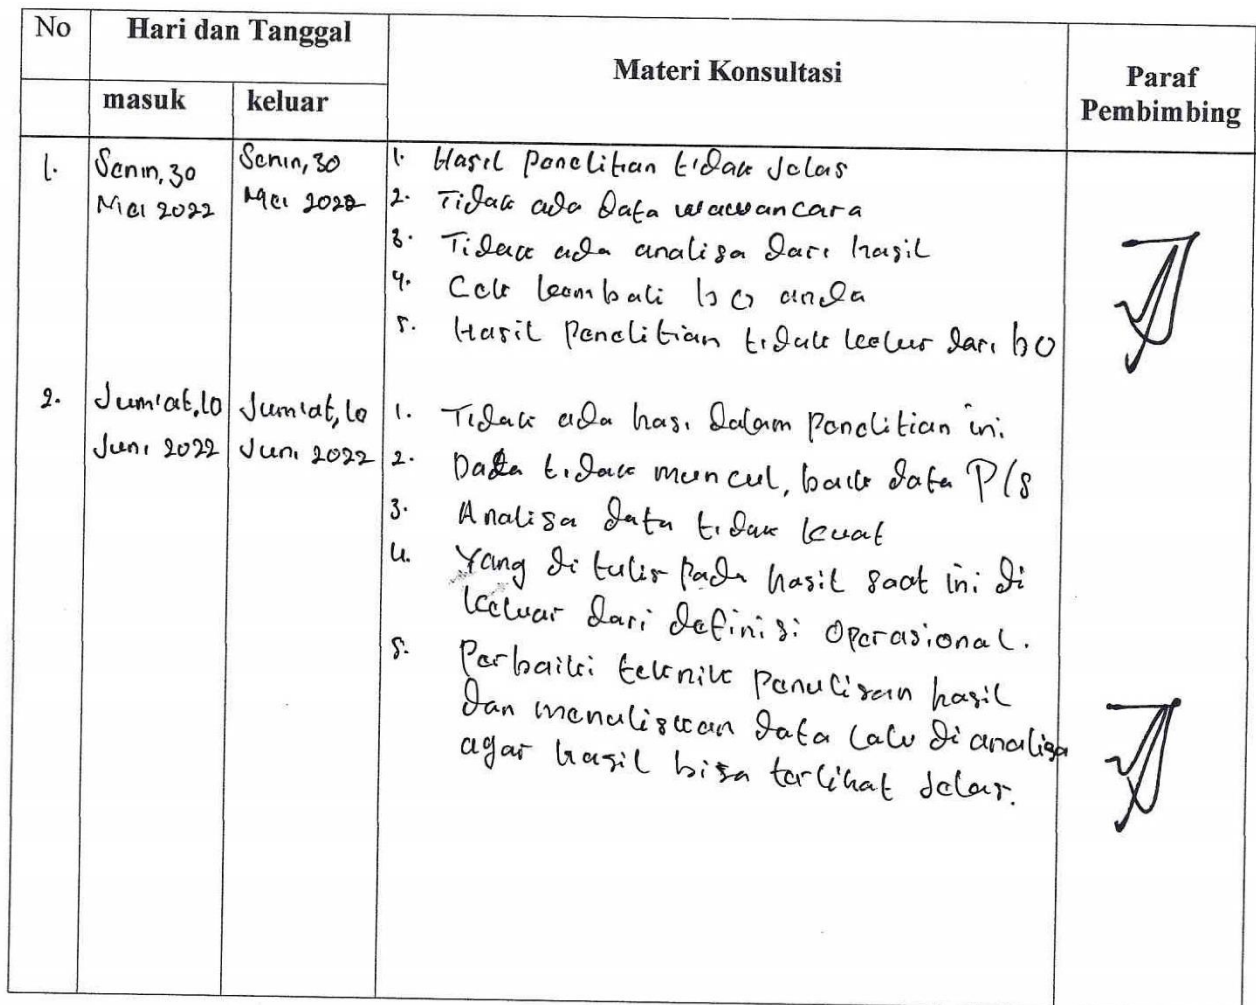 No Hari dan Tanggal Materi Konsultasi Paraf Pembimbing
masuk keluar
1. Senin, 30 Senin, 30 1. Hasil Penelitian tidak Jelas
Mei 2022 Mei 2022 2. Tidak ada Data wawancara
3. Tidak ada analisa dari hasil
4. Cek kembali bo anda
5. Hasil Penelitian tidak keluar dari bo
2. Jum'at, 10 Jum'at, 10 1. Tidak ada hasi dalam penelitian ini
Juni 2022 Juni 2022 2. Data tidak muncul, baik data P/S
3. Analisa data tidak kuat
4. Yang di tulis pada hasil saat ini di
keluar dari definisi Operasional.
5. Perbaiki teknik penulisan hasil
dan menuliskan data lalu di analisa
agar hasil bisa terlihat Jelas.